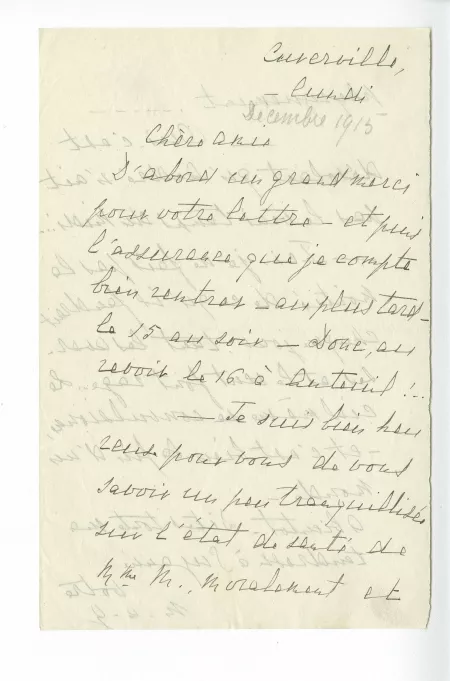 Cuverville,
– lundi
Décembre 1915
Chère amie
D'abord un grand merci
pour votre lettre – et puis
l'assurance que je compte
bien rentrer – au plus tard –
le 15 au soir – Donc, au
revoir le 16 à Auteuil !..
– Je suis bien heu
reuse pour vous de vous
savoir un peu tranquillisée
sur l'état de santé de
Mme M., moralement et